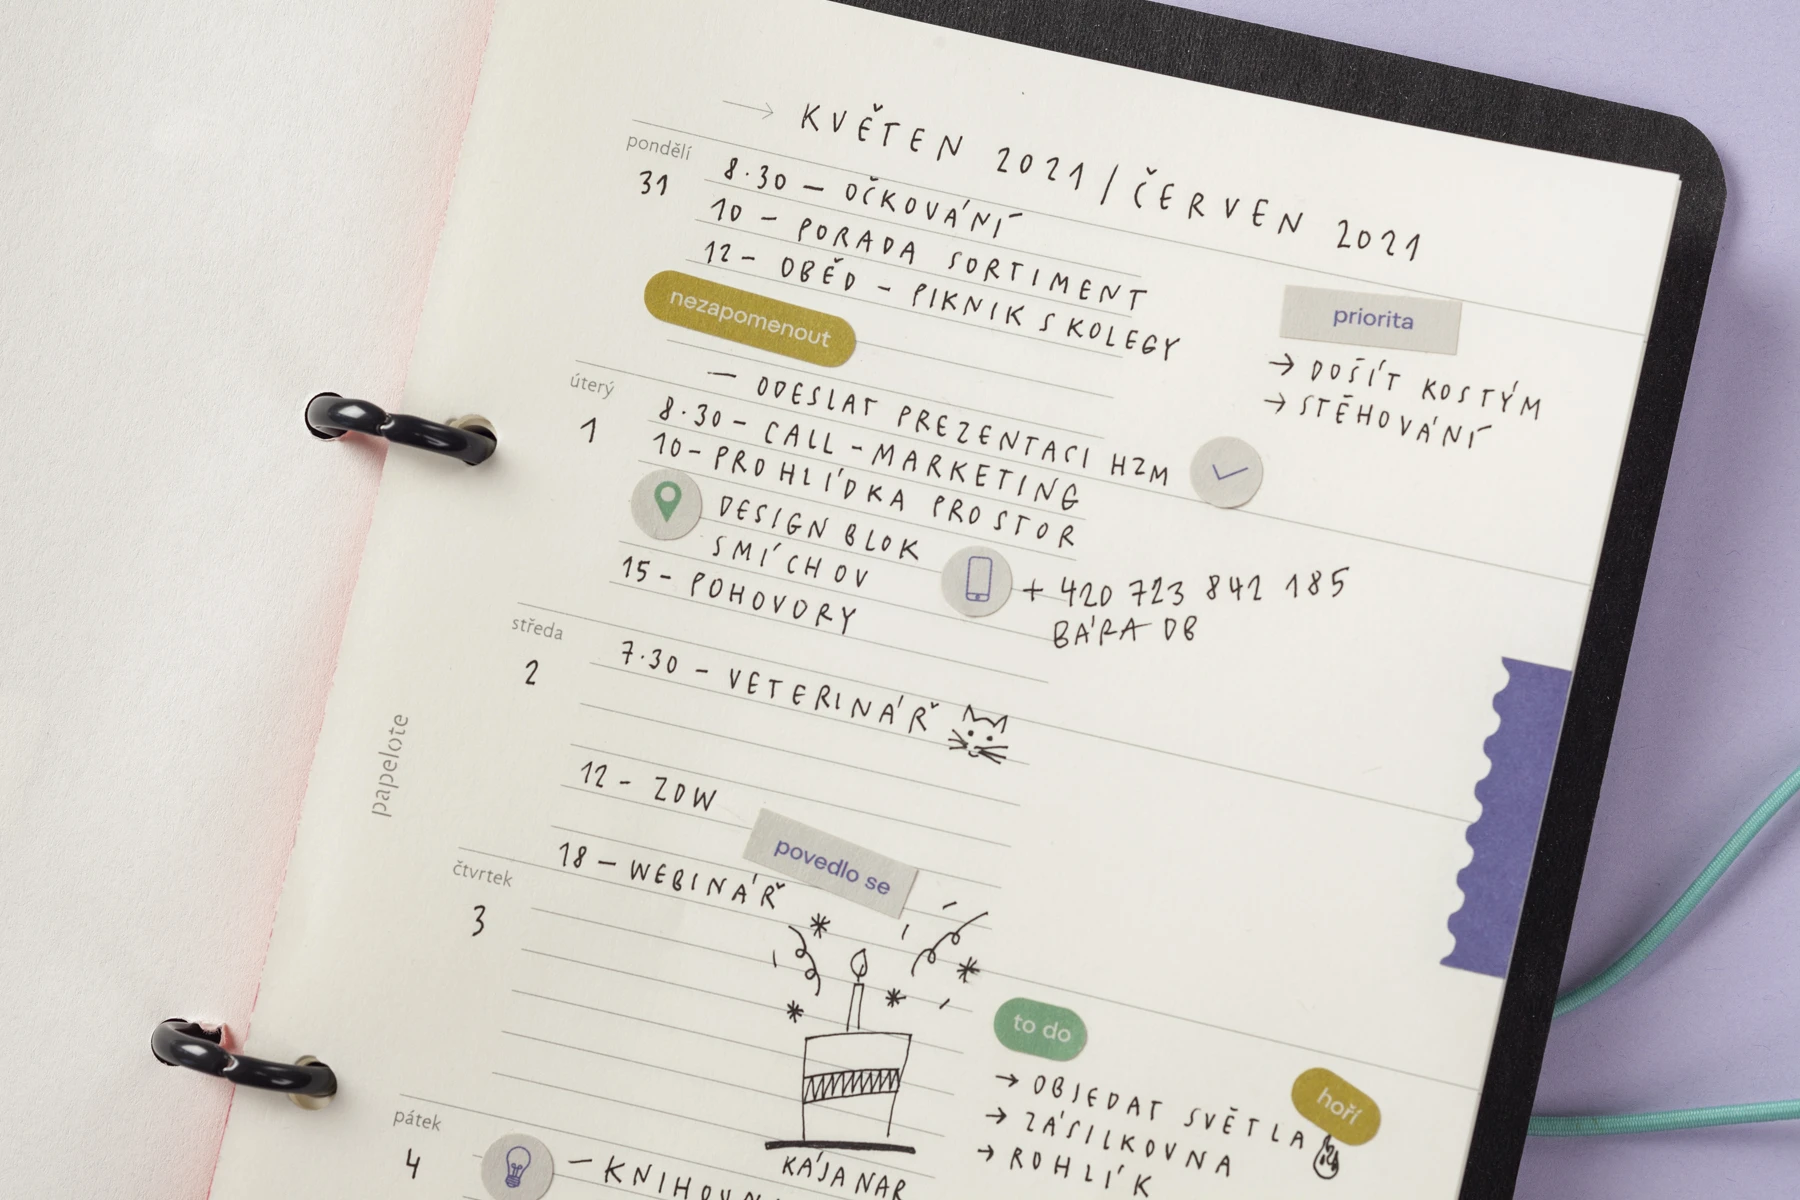 → KVĚTEN 2021 / ČERVEN 2021
pondělí
31
8.30 – OČKOVÁNÍ
10 – PORADA SORTIMENT
12 – OBĚD – PIKNIK S KOLEGY
nezapomenout
– ODESLAT PREZENTACI HZM
priorita
→ DOŠÍT KOSTÝM
→ STĚHOVÁNÍ
úterý
1
8.30 – CALL – MARKETING
10 – PROHLÍDKA PROSTOR
DESIGN BLOK
SMÍCHOV
15 – POHOVORY
+ 420 723 842 185
BÁRA DB
středa
2
7.30 – VETERINÁŘ
12 – ZOW
18 – WEBINÁŘ
povedlo se
čtvrtek
3
KÁJA NAR
to do
→ OBJEDAT SVĚTLA
→ ZÁSILKOVNA
→ ROHLÍK
hoří
pátek
4
papelote